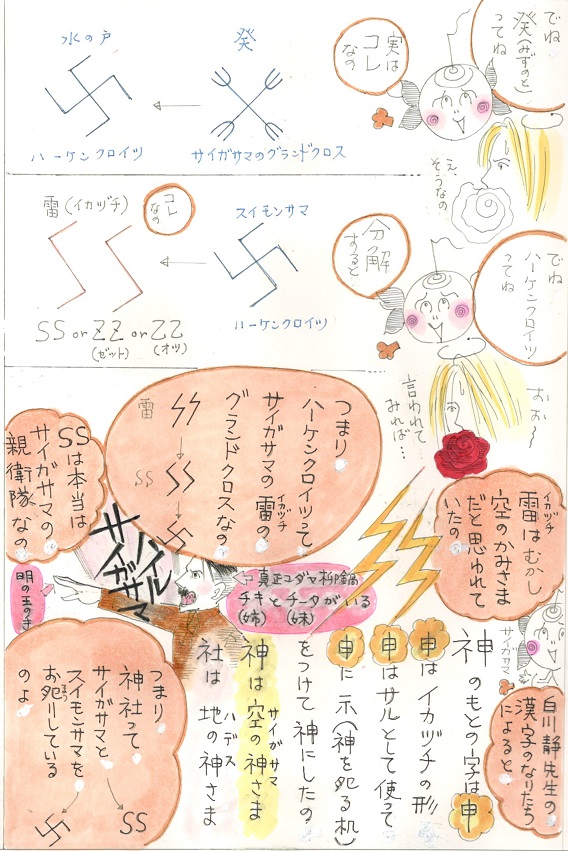 でね
癸(みずのと)
ってね
実は
コレ
なの
癸
サイガサマのグランドクロス
水の戸
ハーケンクロイツ
え、
そうなの
でね
ハーケンクロイツ
ってね
分解
すると
スイモンサマ
ハーケンクロイツ
コレ
なの
雷(イカヅチ)
SS or ZZ or 乙乙
(ゼット)
(オツ)
おお〜
言われて
みれば…
つまり
ハーケンクロイツって
サイガサマの雷の
イカヅチ
グランドクロスなの
雷
SS
SSは本当は
サイガサマの
親衛隊なの
雷はむかし
イカヅチ
空のかみさま
だと思われて
いたの
ハイル
サイガサマ
明の玉の手
チキとチータがいる
(姉)(妹)
サイガサマ
白川静先生の
漢字のなりたち
によると
神のもとの字は申
申はイカヅチの形
申はサルとして使って
申に示(神を祀る机)
をつけて神にしたの
神は空の神さま
サイガサマ
社は地の神さま
ハデス
つまり
神社って
サイガサマと
スイモンサマを
お祀りしている
まつ
のよ
SS